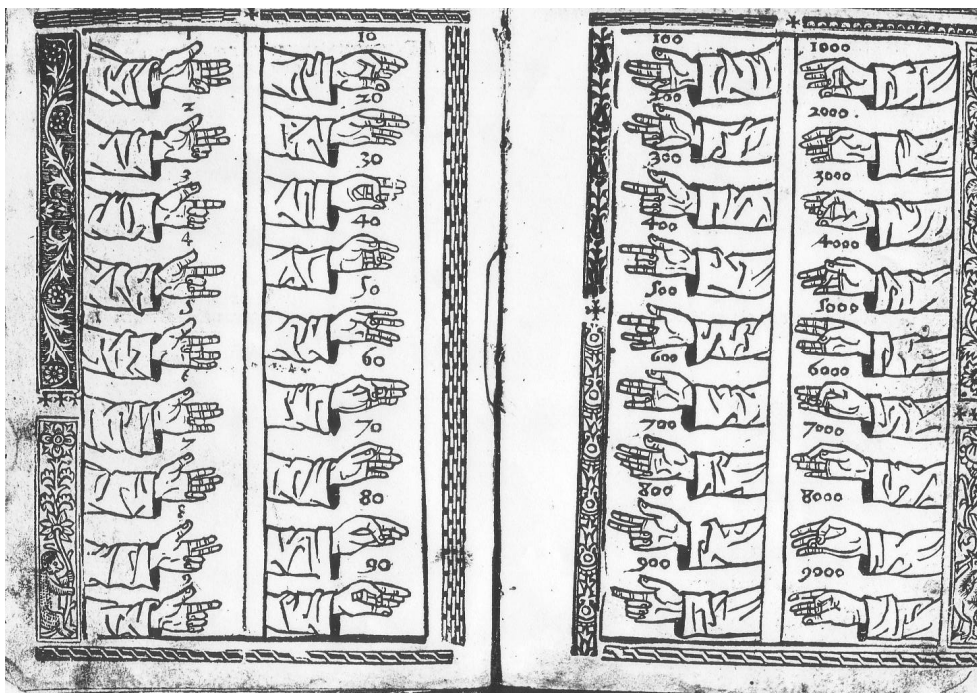 1
2
3
4
5
6
7
8
9
10
20
30
40
50
60
70
80
90
100
200
300
400
500
600
700
800
900
1000
2000 .
3000
4000
5000
6000
7000
8000
9000